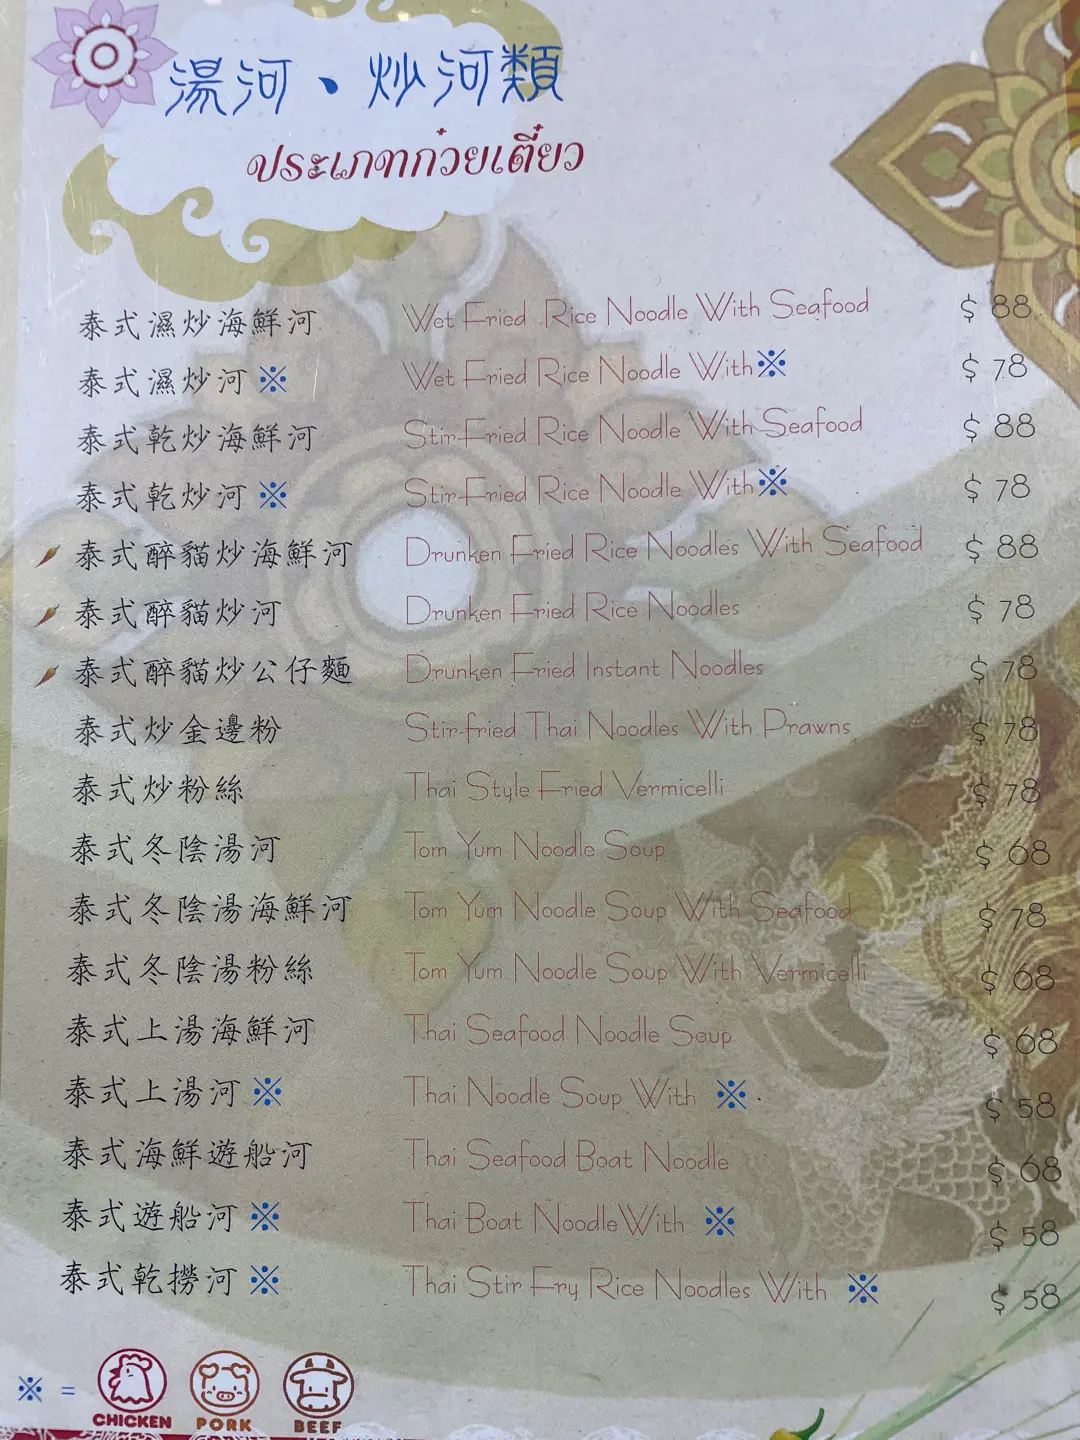 湯河、炒河類
ประเภทก๋วยเตี๋ยว
泰式濕炒海鮮河 Wet Fried Rice Noodle With Seafood $ 88
泰式濕炒河※ Wet Fried Rice Noodle With※ $ 78
泰式乾炒海鮮河 Stir-Fried Rice Noodle With Seafood $ 88
泰式乾炒河※ Stir-Fried Rice Noodle With※ $ 78
泰式醉貓炒海鮮河 Drunken Fried Rice Noodles With Seafood $ 88
泰式醉貓炒河 Drunken Fried Rice Noodles $ 78
泰式醉貓炒公仔麵 Drunken Fried Instant Noodles $ 78
泰式炒金邊粉 Stir-fried Thai Noodles With Prawns $ 78
泰式炒粉絲 Thai Style Fried Vermicelli $ 78
泰式冬陰湯河 Tom Yum Noodle Soup $ 68
泰式冬陰湯海鮮河 Tom Yum Noodle Soup With Seafood $ 78
泰式冬陰湯粉絲 Tom Yum Noodle Soup With Vermicelli $ 68
泰式上湯海鮮河 Thai Seafood Noodle Soup $ 68
泰式上湯河※ Thai Noodle Soup With ※ $ 58
泰式海鮮遊船河 Thai Seafood Boat Noodle $ 68
泰式遊船河※ Thai Boat NoodleWith ※ $ 58
泰式乾撈河※ Thai Stir Fry Rice Noodles With ※ $ 58
※ = CHICKEN PORK BEEF